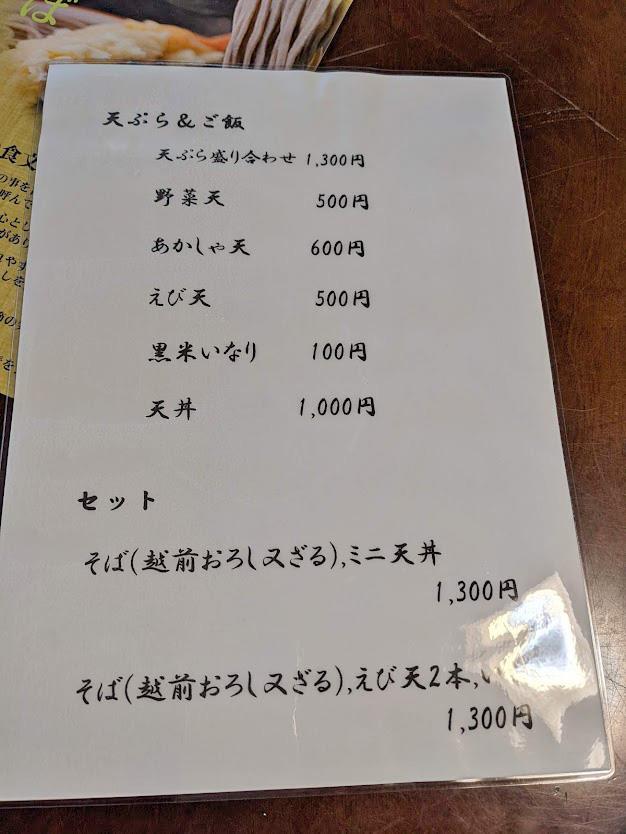 ば
食文
の事を
呼んで
天ぷら&ご飯
天ぷら盛り合わせ 1,300円
野菜天 500円
あかしゃ天 600円
えび天 500円
黒米いなり 100円
天丼 1,000円
セット
そば(越前おろし又ざる),ミニ天丼
1,300円
そば(越前おろし又ざる),えび天2本,い
1,300円